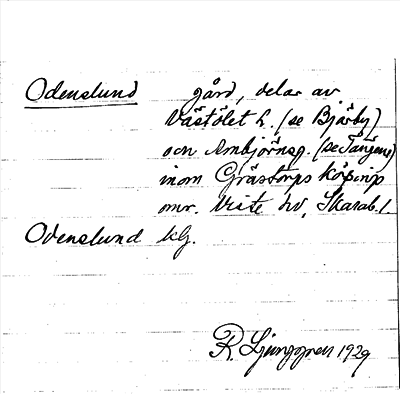 Odenslund gård, delar av
Västölet h. (se Bjärby)
och Ambjörnsg. (se Tängene)
inom Grästorps köping
omr. Viste hd, Skarab. l.
Odenslund klg.
R. Ljunggren 1929